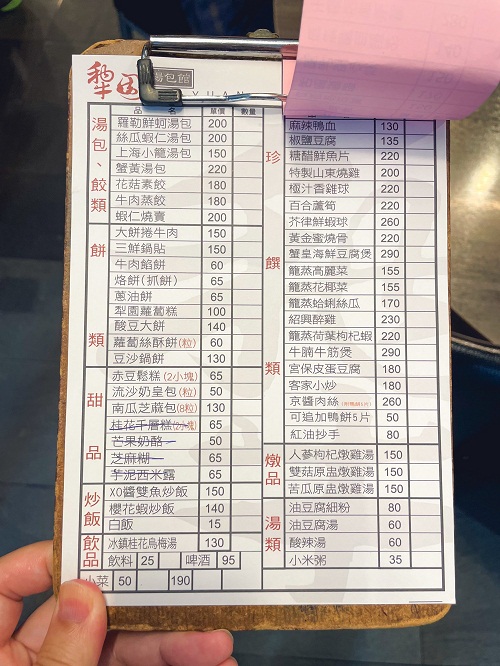 犁園湯包館
YUAN
品 名 單價 數量
湯包、餃類
羅勒鮮蚵湯包 200
絲瓜蝦仁湯包 200
上海小籠湯包 150
蟹黃湯包 220
花菇素餃 180
牛肉蒸餃 180
蝦仁燒賣 200
餅類
大餅捲牛肉 150
三鮮鍋貼 150
牛肉餡餅 60
烙餅(抓餅) 65
蔥油餅 65
犁園蘿蔔糕 100
酸豆大餅 140
蘿蔔絲酥餅(粒) 60
豆沙鍋餅 130
甜品
赤豆鬆糕(2小塊) 65
流沙奶皇包(粒) 50
南瓜芝蔴包(8粒) 130
桂花千層糕(2小塊) 65
芒果奶酪 50
芝麻糊 65
芋泥西米露 65
炒飯
XO醬雙魚炒飯 150
櫻花蝦炒飯 140
白飯 15
飲品
冰鎮桂花烏梅湯 130
飲料 25 啤酒 95
小菜 50 190
珍饌類
麻辣鴨血 130
椒鹽豆腐 135
糖醋鮮魚片 220
特製山東燒雞 200
極汁香雞球 220
百合蘆筍 220
芥律鮮蝦球 260
黃金蜜燒骨 220
蟹皇海鮮豆腐煲 290
籠蒸高麗菜 155
籠蒸花椰菜 155
籠蒸蛤蜊絲瓜 170
紹興醉雞 230
籠蒸荷葉枸杞蝦 220
牛腩牛筋煲 290
宮保皮蛋豆腐 180
客家小炒 180
京醬肉絲 260
可追加鴨餅5片 50
紅油抄手 80
燉品
人蔘枸杞燉雞湯 150
雙菇原盅燉雞湯 150
苦瓜原盅燉雞湯 150
湯類
油豆腐細粉 80
油豆腐湯 60
酸辣湯 60
小米粥 35